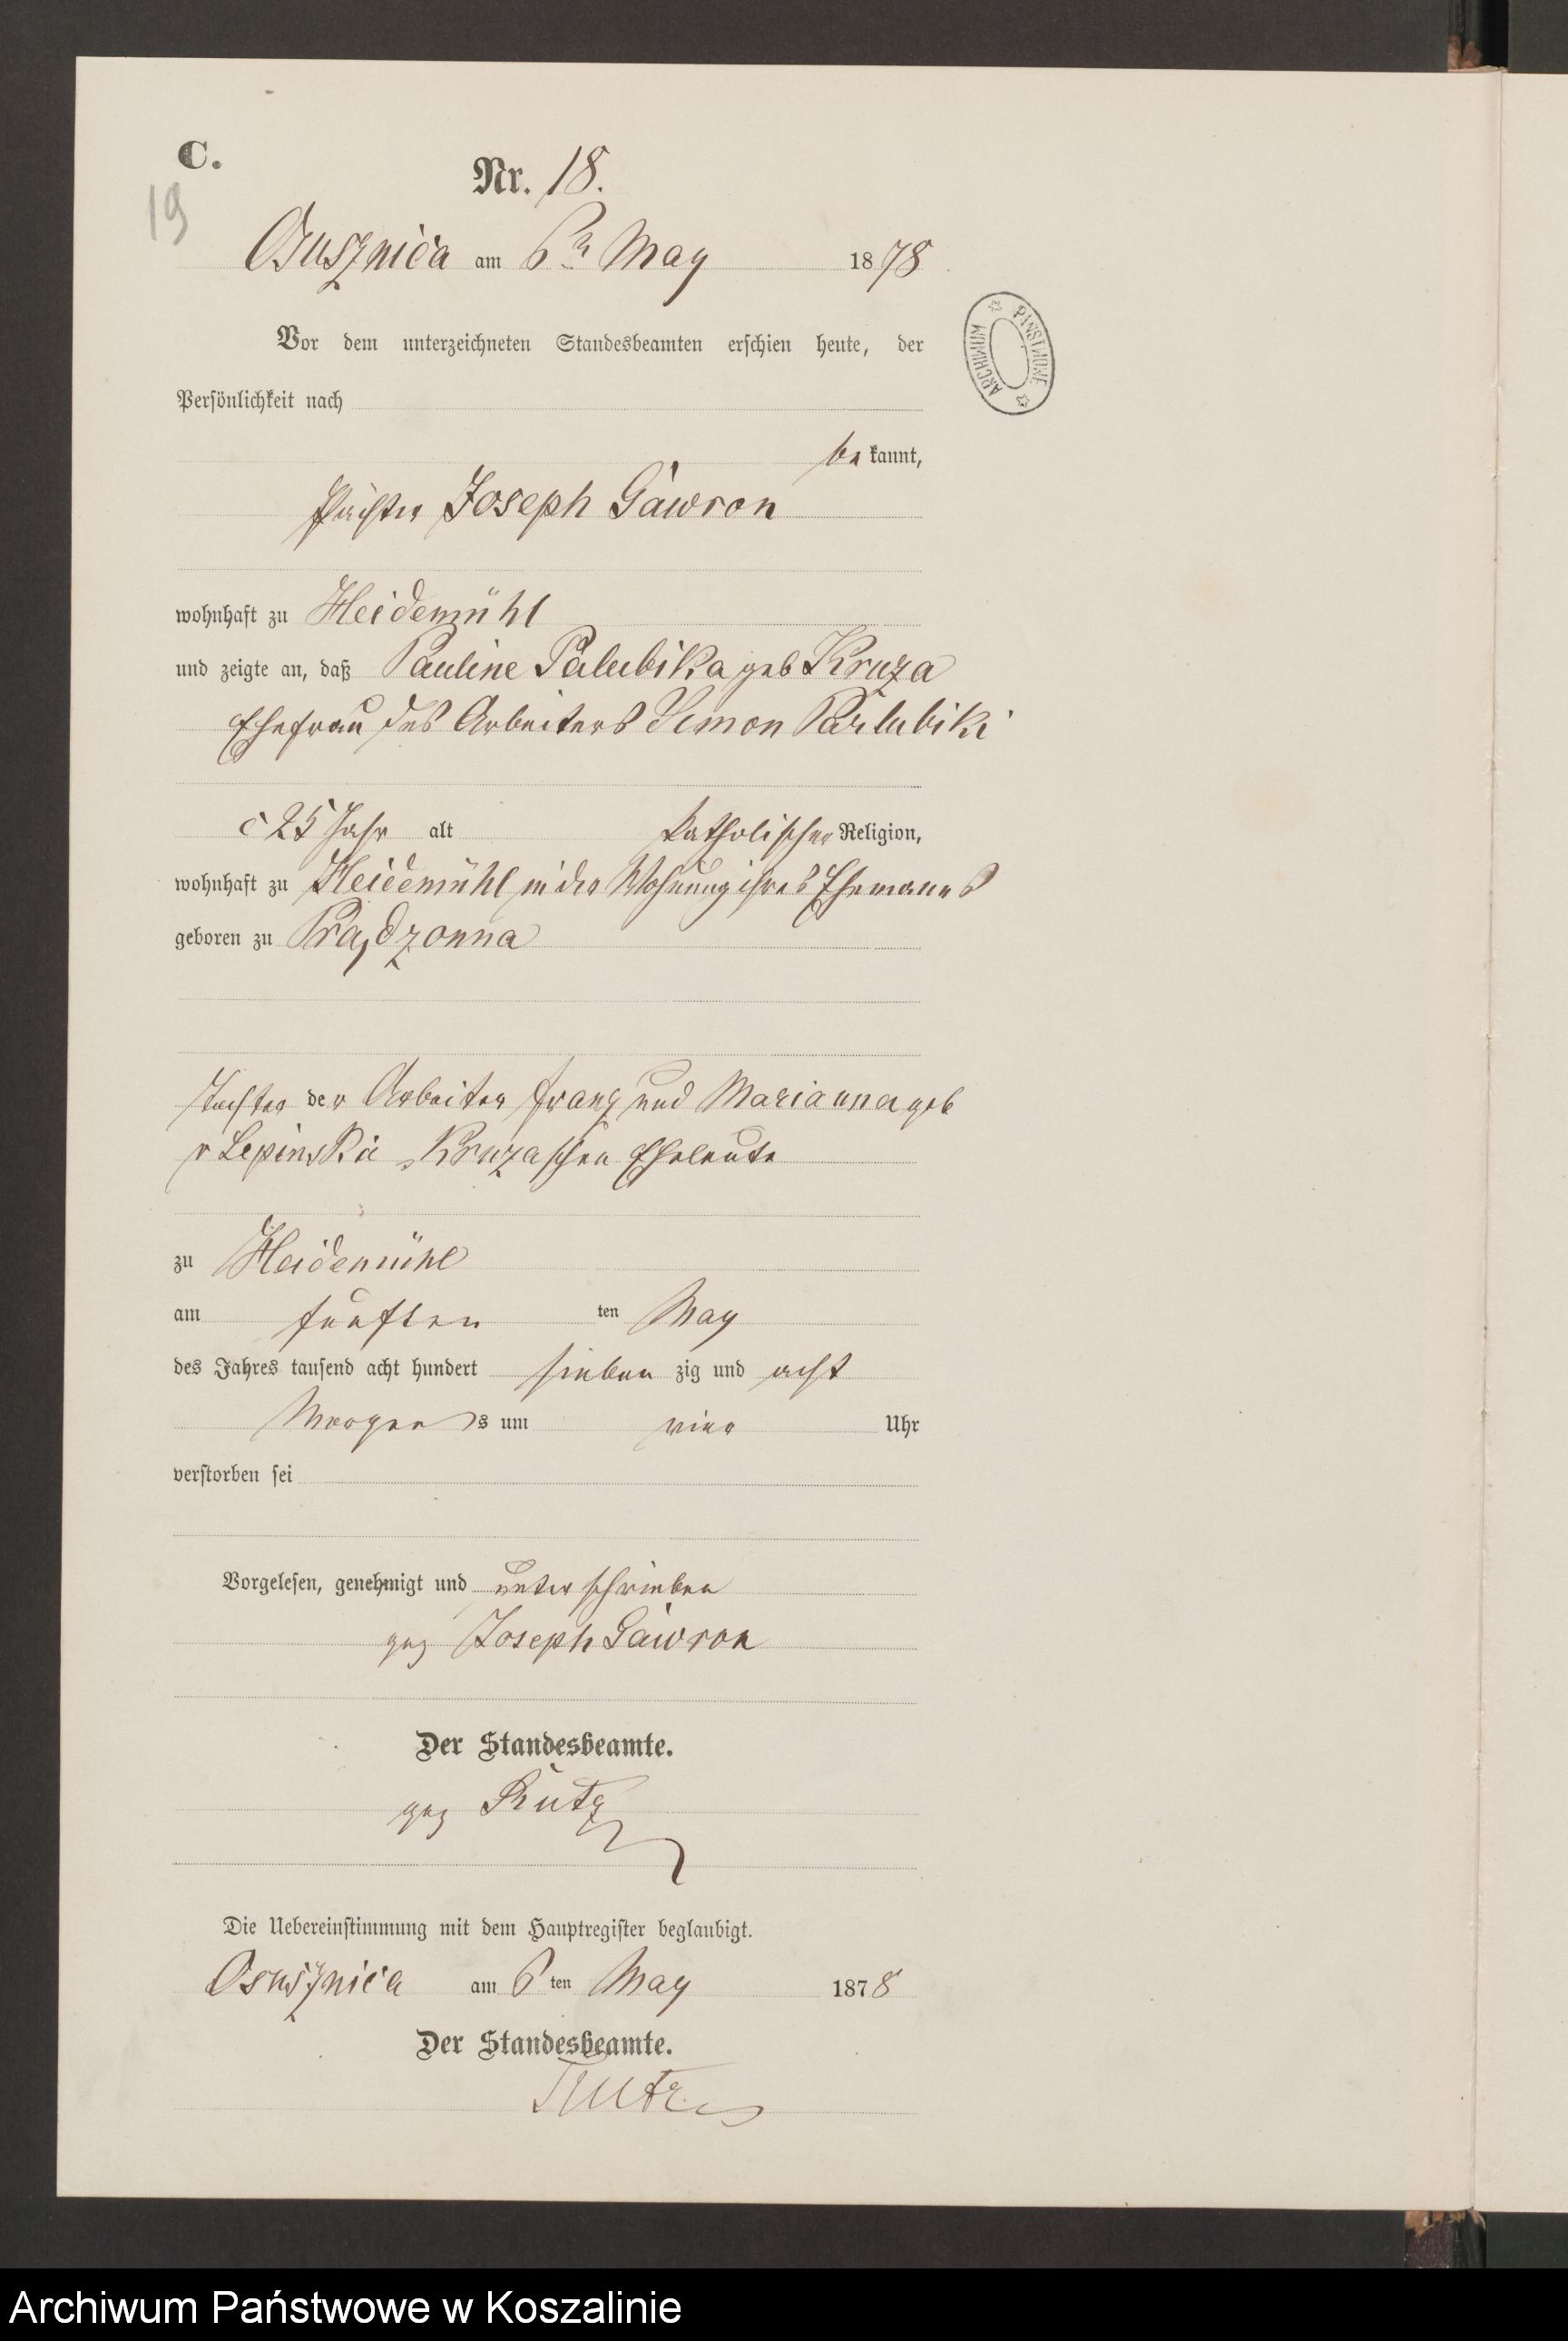 C.
Nr. 18.
19
Osusznica am 6ten May 1878
ARCHIWUM PAŃSTWOWE
Vor dem unterzeichneten Standesbeamten erschien heute, der
Persönlichkeit nach
be kannt,
Pächter Joseph Gawron
wohnhaft zu Heidemühl
und zeigte an, daß Pauline Palubika geb Kruza
Ehefrau des Arbeiters Simon Palubiki
c 25 Jahr alt katholischer Religion,
wohnhaft zu Heidemühl in der Wohnung ihres Ehemannes
geboren zu Prądzonna
Tochter der Arbeiter Franz und Marianna geb
v Lepinska Kruzaschen Eheleute
zu Heidemühl
am fünften ten May
des Jahres tausend acht hundert sieben zig und acht
Morgen s um vier Uhr
verstorben sei
Vorgelesen, genehmigt und unterschrieben
gez Joseph Gawron
Der Standesbeamte.
gez Kutz
Die Uebereinstimmung mit dem Hauptregister beglaubigt.
Osusznica am 6 ten May 1878
Der Standesbeamte.
Kutz
Archiwum Państwowe w Koszalinie